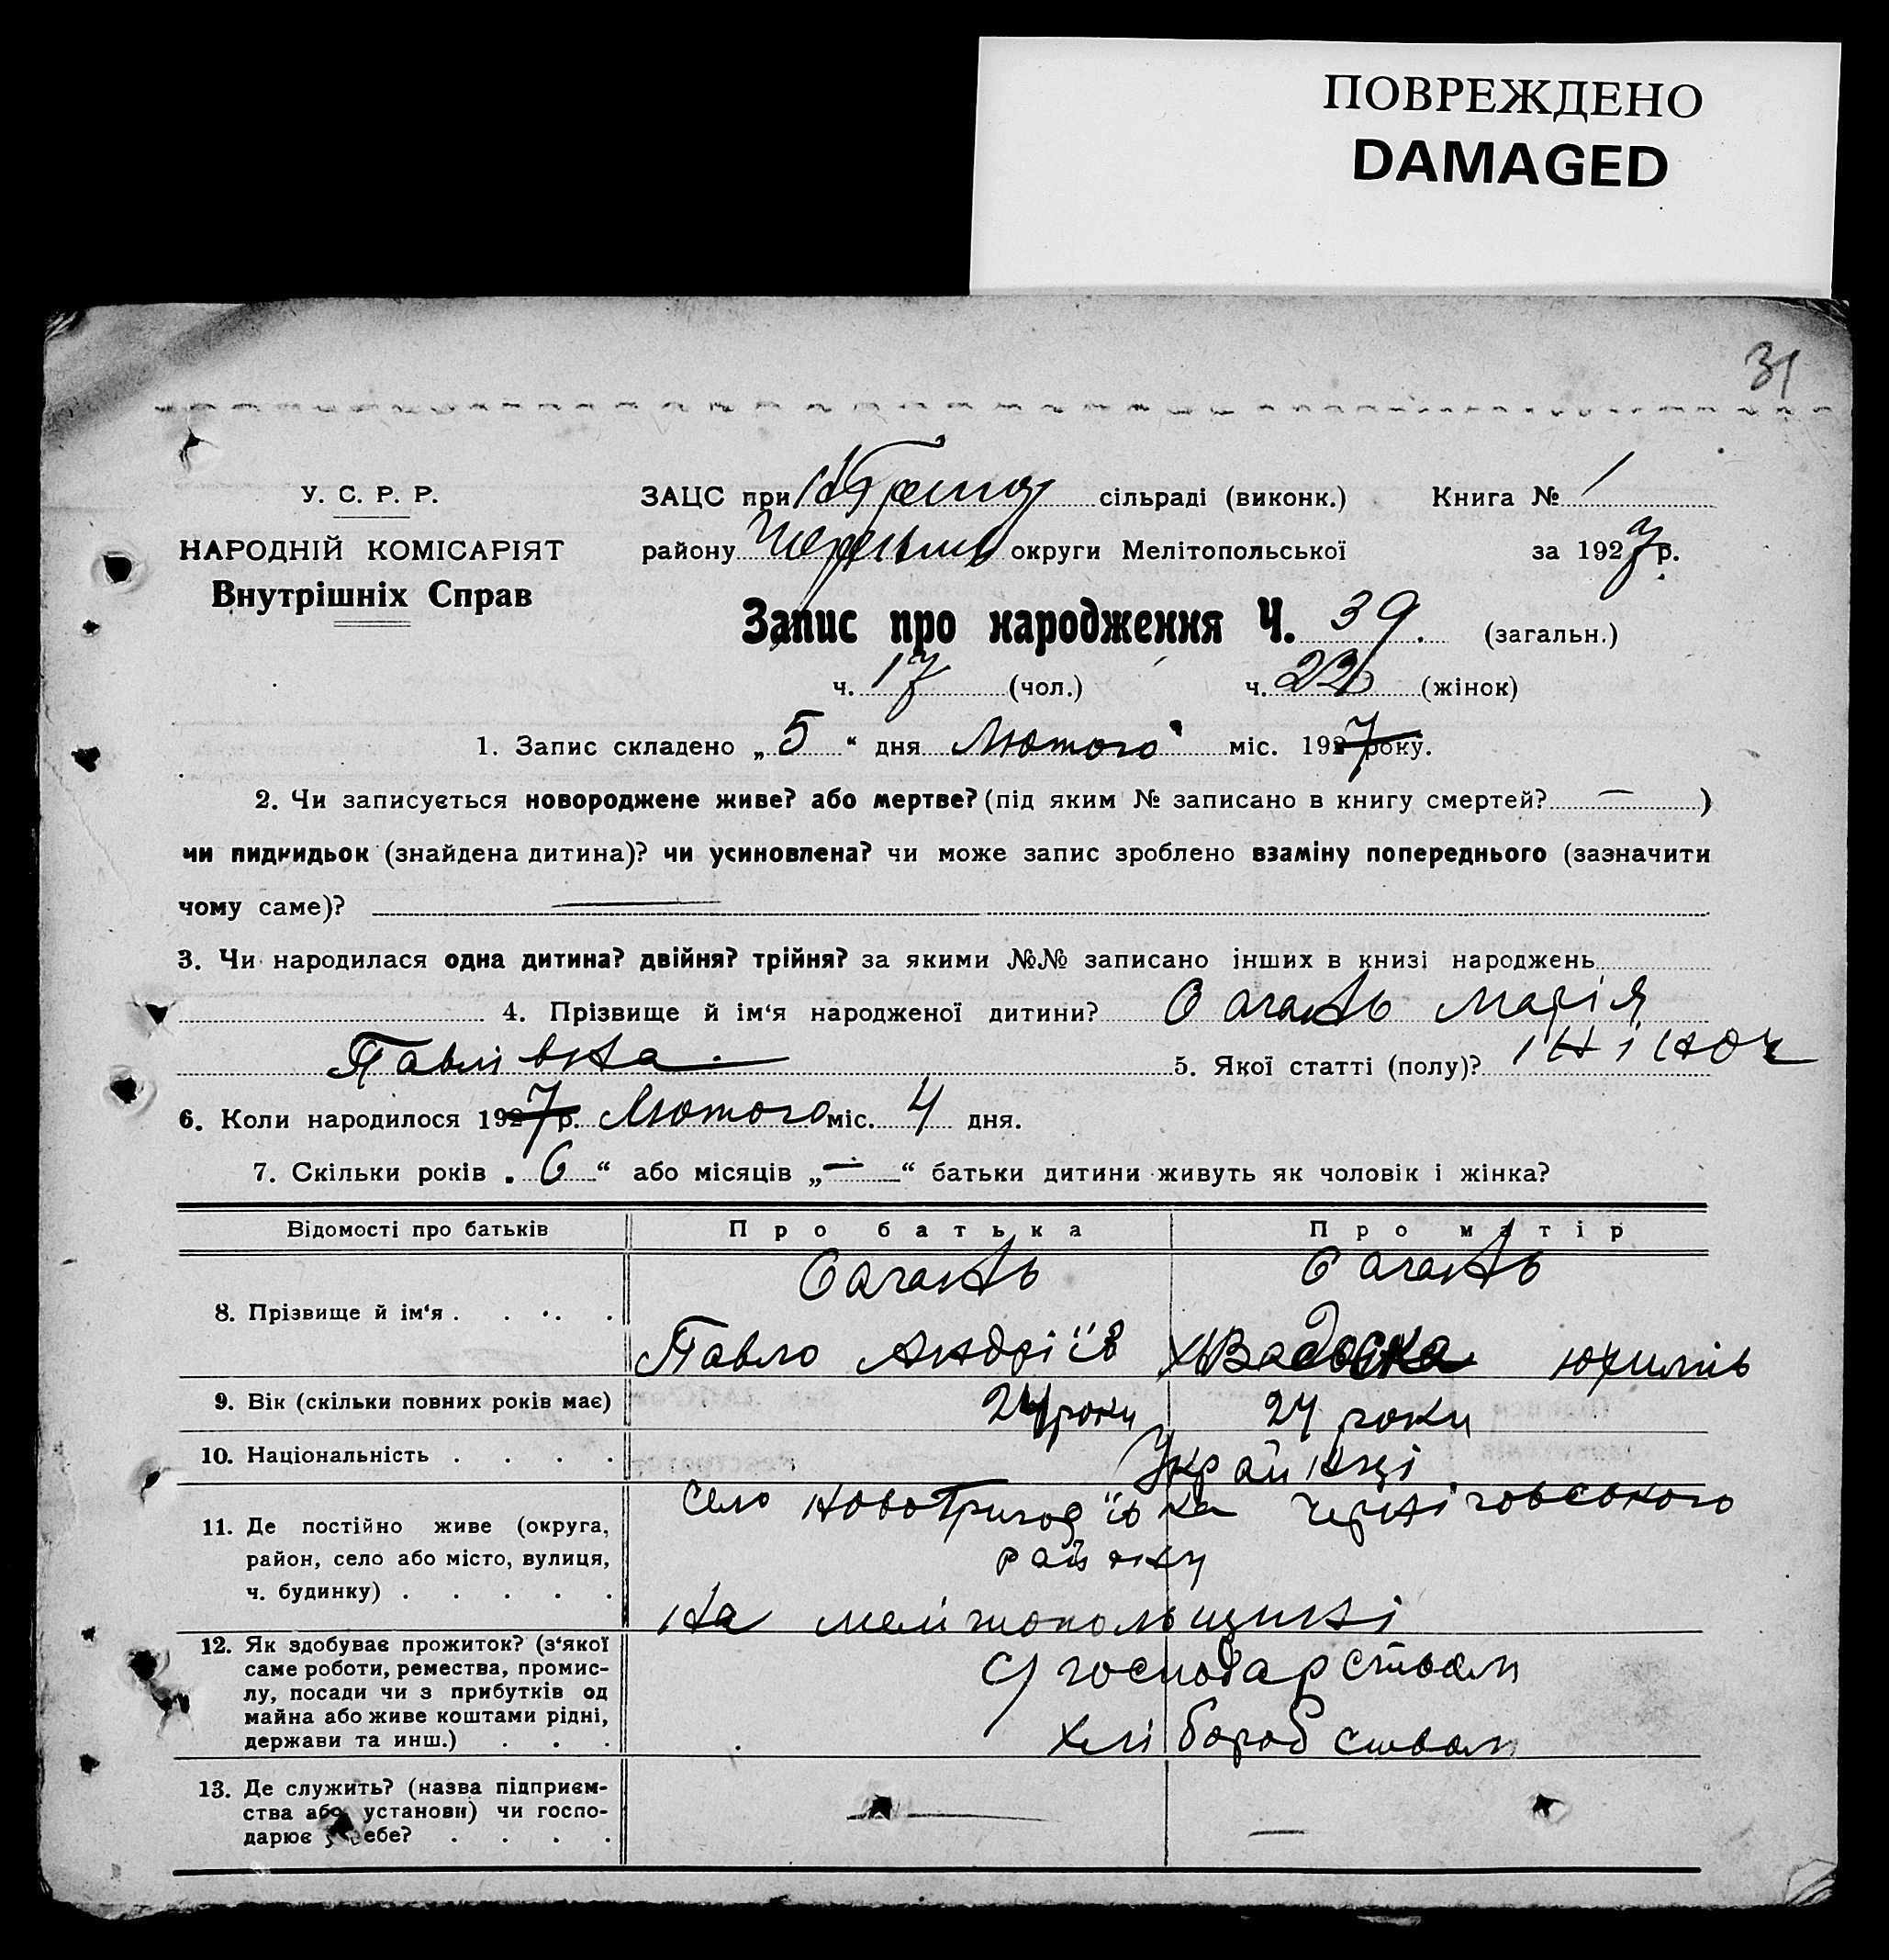 ПОВРЕЖДЕНО
DAMAGED
31
У. С. Р. Р.
НАРОДНІЙ КОМІСАРІЯТ
Внутрішніх Справ
ЗАЦС при сільраді (виконк.) Книга № 1
району округи Мелітопольської за 1927 р.
Запис про народження Ч. 39. (загальн.)
ч. 17 (чол.) ч. 22 (жінок)
1. Запис складено „ 5 “ дня Лютого міс. 1927 року.
2. Чи записується новороджене живе? або мертве? (під яким № записано в книгу смертей? — )
чи пидкидьок (знайдена дитина)? чи усиновлена? чи може запис зроблено взаміну попереднього (зазначити
чому саме)? —
3. Чи народилася одна дитина? двійня? трійня? за якими №№ записано інших в книзі народжень
4. Прізвище й ім‘я народженої дитини? Сагань Марія
Павлівна. 5. Якої статті (полу)? жіноч
6. Коли народилося 1927 р. Лютого міс. 4 дня.
7. Скільки років „ 6 “ або місяців „ — “ батьки дитини живуть як чоловік і жінка?
Відомості про батьків Про батька Про матір
8. Прізвище й ім‘я . . . . . Сагань Сагань
Павло Андріїв
9. Вік (скільки повних років має) 24 роки 24 роки
10. Національність . . . . Українці
11. Де постійно живе (округа, район, село або місто, вулиця, ч. будинку) . . . . .
село Черніговського
району
на мелітопольщині
12. Як здобуває прожиток? (з‘якої
саме роботи, ремества, промис-
лу, посади чи з прибутків од
майна або живе коштами рідні,
держави та инш.) . . .
господарством
хліборобством
13. Де служить? (назва підприєм-
ства або установи) чи госпо-
дарює у себе? . . . .
— —